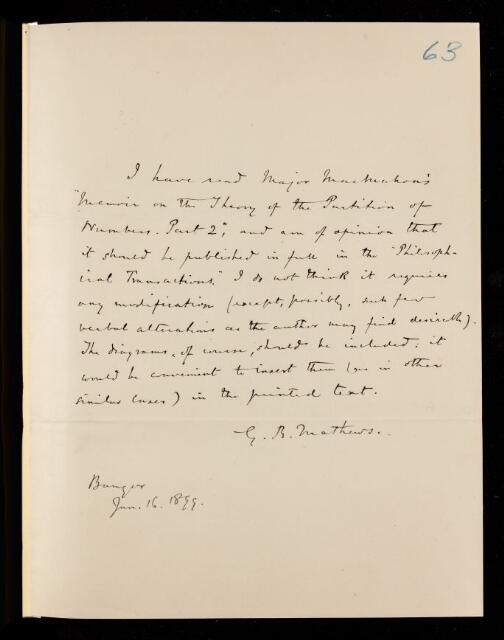 63
I have read Major MacMahon's
"Memoir on the Theory of the Partition of
Numbers. Part 2", and am of opinion that
it should be published in full in the "Philosoph-
ical Transactions." I do not think it requires
any modification (except, possibly, such few
verbal alterations as the author may find desirable).
The diagrams, of course, should be included; it
would be convenient to insert them (as in other
similar cases) in the printed text.
G. B. Mathews.
Bangor
Jan. 16. 1899.